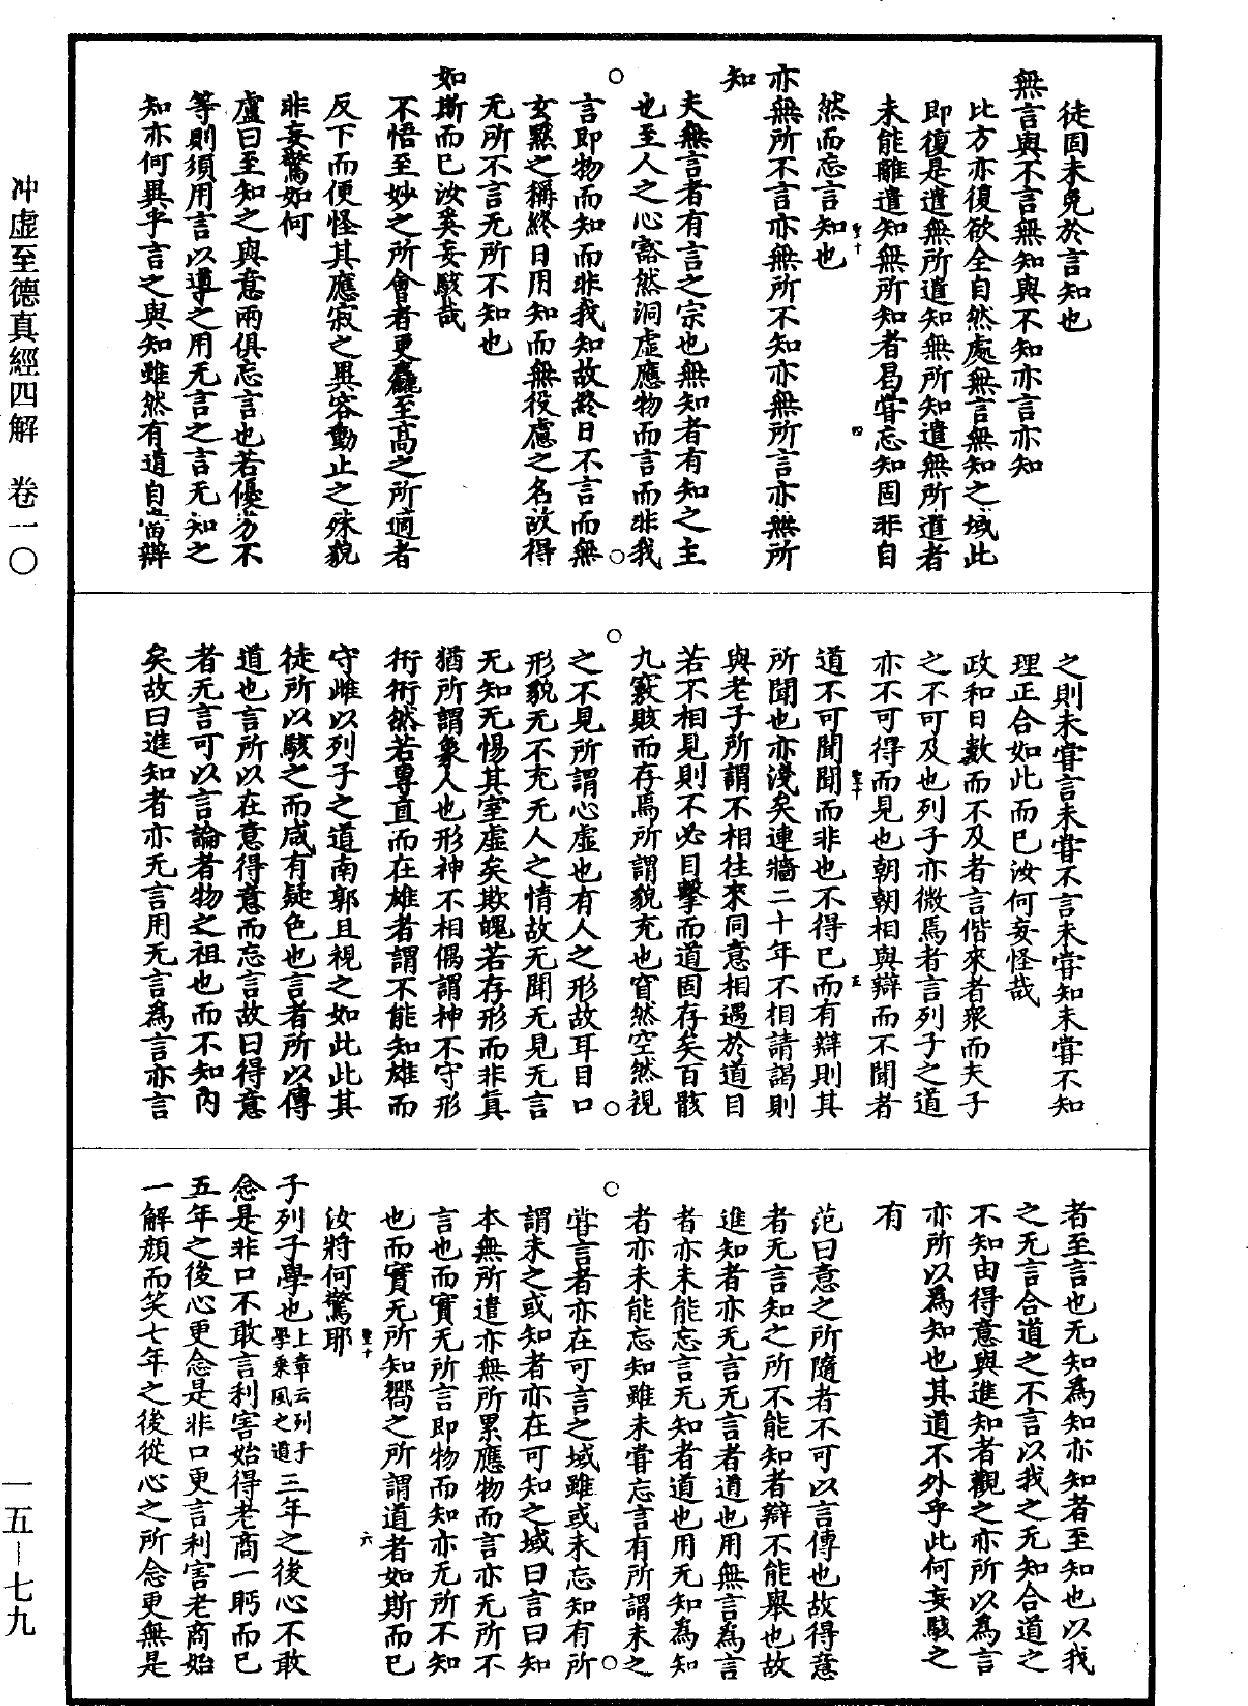 冲虛至德真經四解　卷一〇
一五—七九
徒固未免於言知也
無言與不言無知與不知亦言亦知
比方亦復欲全自然處無言無知之域此
即復是遣無所遣知無所知遣無所遣者
未能離遣知無所知者曷嘗忘知固非自
然而忘言知也
亦無所不言亦無所不知亦無所言亦無所
知
夫無言者有言之宗也無知者有知之主
也至人之心豁然洞虛應物而言而非我
言即物而知而非我知故終日不言而無
玄默之稱終日用知而無役慮之名故得
无所不言无所不知也
如斯而已汝奚妄駭哉
不悟至妙之所會者更麤至高之所適者
反下而便怪其應寂之異容動止之殊貌
非妄驚如何
盧曰至知之與意兩俱忘言也若優劣不
等則須用言以導之用无言之言无知之
知亦何異乎言之與知雖然有道自當辯
之則未嘗言未嘗不言未嘗知未嘗不知
理正合如此而已汝何妄怪哉
政和日數而不及者言偕來者衆而夫子
之不可及也列子亦微焉者言列子之道
亦不可得而見也朝朝相與辯而不聞者
道不可聞聞而非也不得已而有辯則其
所聞也亦淺矣連牆二十年不相請謁則
與老子所謂不相往來同意相遇於道目
若不相見則不必目擊而道固存矣百骸
九竅賅而存焉所謂貌充也窅然空然視
之不見所謂心虛也有人之形故耳目口
形貌无不充无人之情故无聞无見无言
无知无惕其室虛矣欺魄若存形而非真
猶所謂象人也形神不相偶謂神不守形
衎衎然若專直而在雄者謂不能知雄而
守雌以列子之道南郭且視之如此此其
徒所以駭之而咸有疑色也言者所以傳
道也言所以在意得意而忘言故曰得意
者无言可以言論者物之祖也而不知內
矣故曰進知者亦无言用无言為言亦言
者至言也无知為知亦知者至知也以我
之无言合道之不言以我之无知合道之
不知由得意與進知者觀之亦所以為言
亦所以為知也其道不外乎此何妄駭之
有
范曰意之所隨者不可以言傳也故得意
者无言知之所不能知者辯不能舉也故
進知者亦无言无言者道也用無言為言
者亦未能忘言无知者道也用无知為知
者亦未能忘知雖未嘗忘言有所謂未之
嘗言者亦在可言之域雖或未忘知有所
謂未之或知者亦在可知之域曰言曰知
本無所遣亦無所累應物而言亦无所不
言也而實无所言即物而知亦无所不知
也而實无所知嚮之所謂道者如斯而已
汝將何驚耶
子列子學也上章云列子學乘風之道三年之後心不敢
念是非口不敢言利害始得老商一眄而已
五年之後心更念是非口更言利害老商始
一解顔而笑七年之後從心之所念更無是